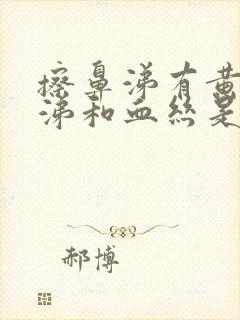 擦鼻涕有黄
涕和血丝是
郝博